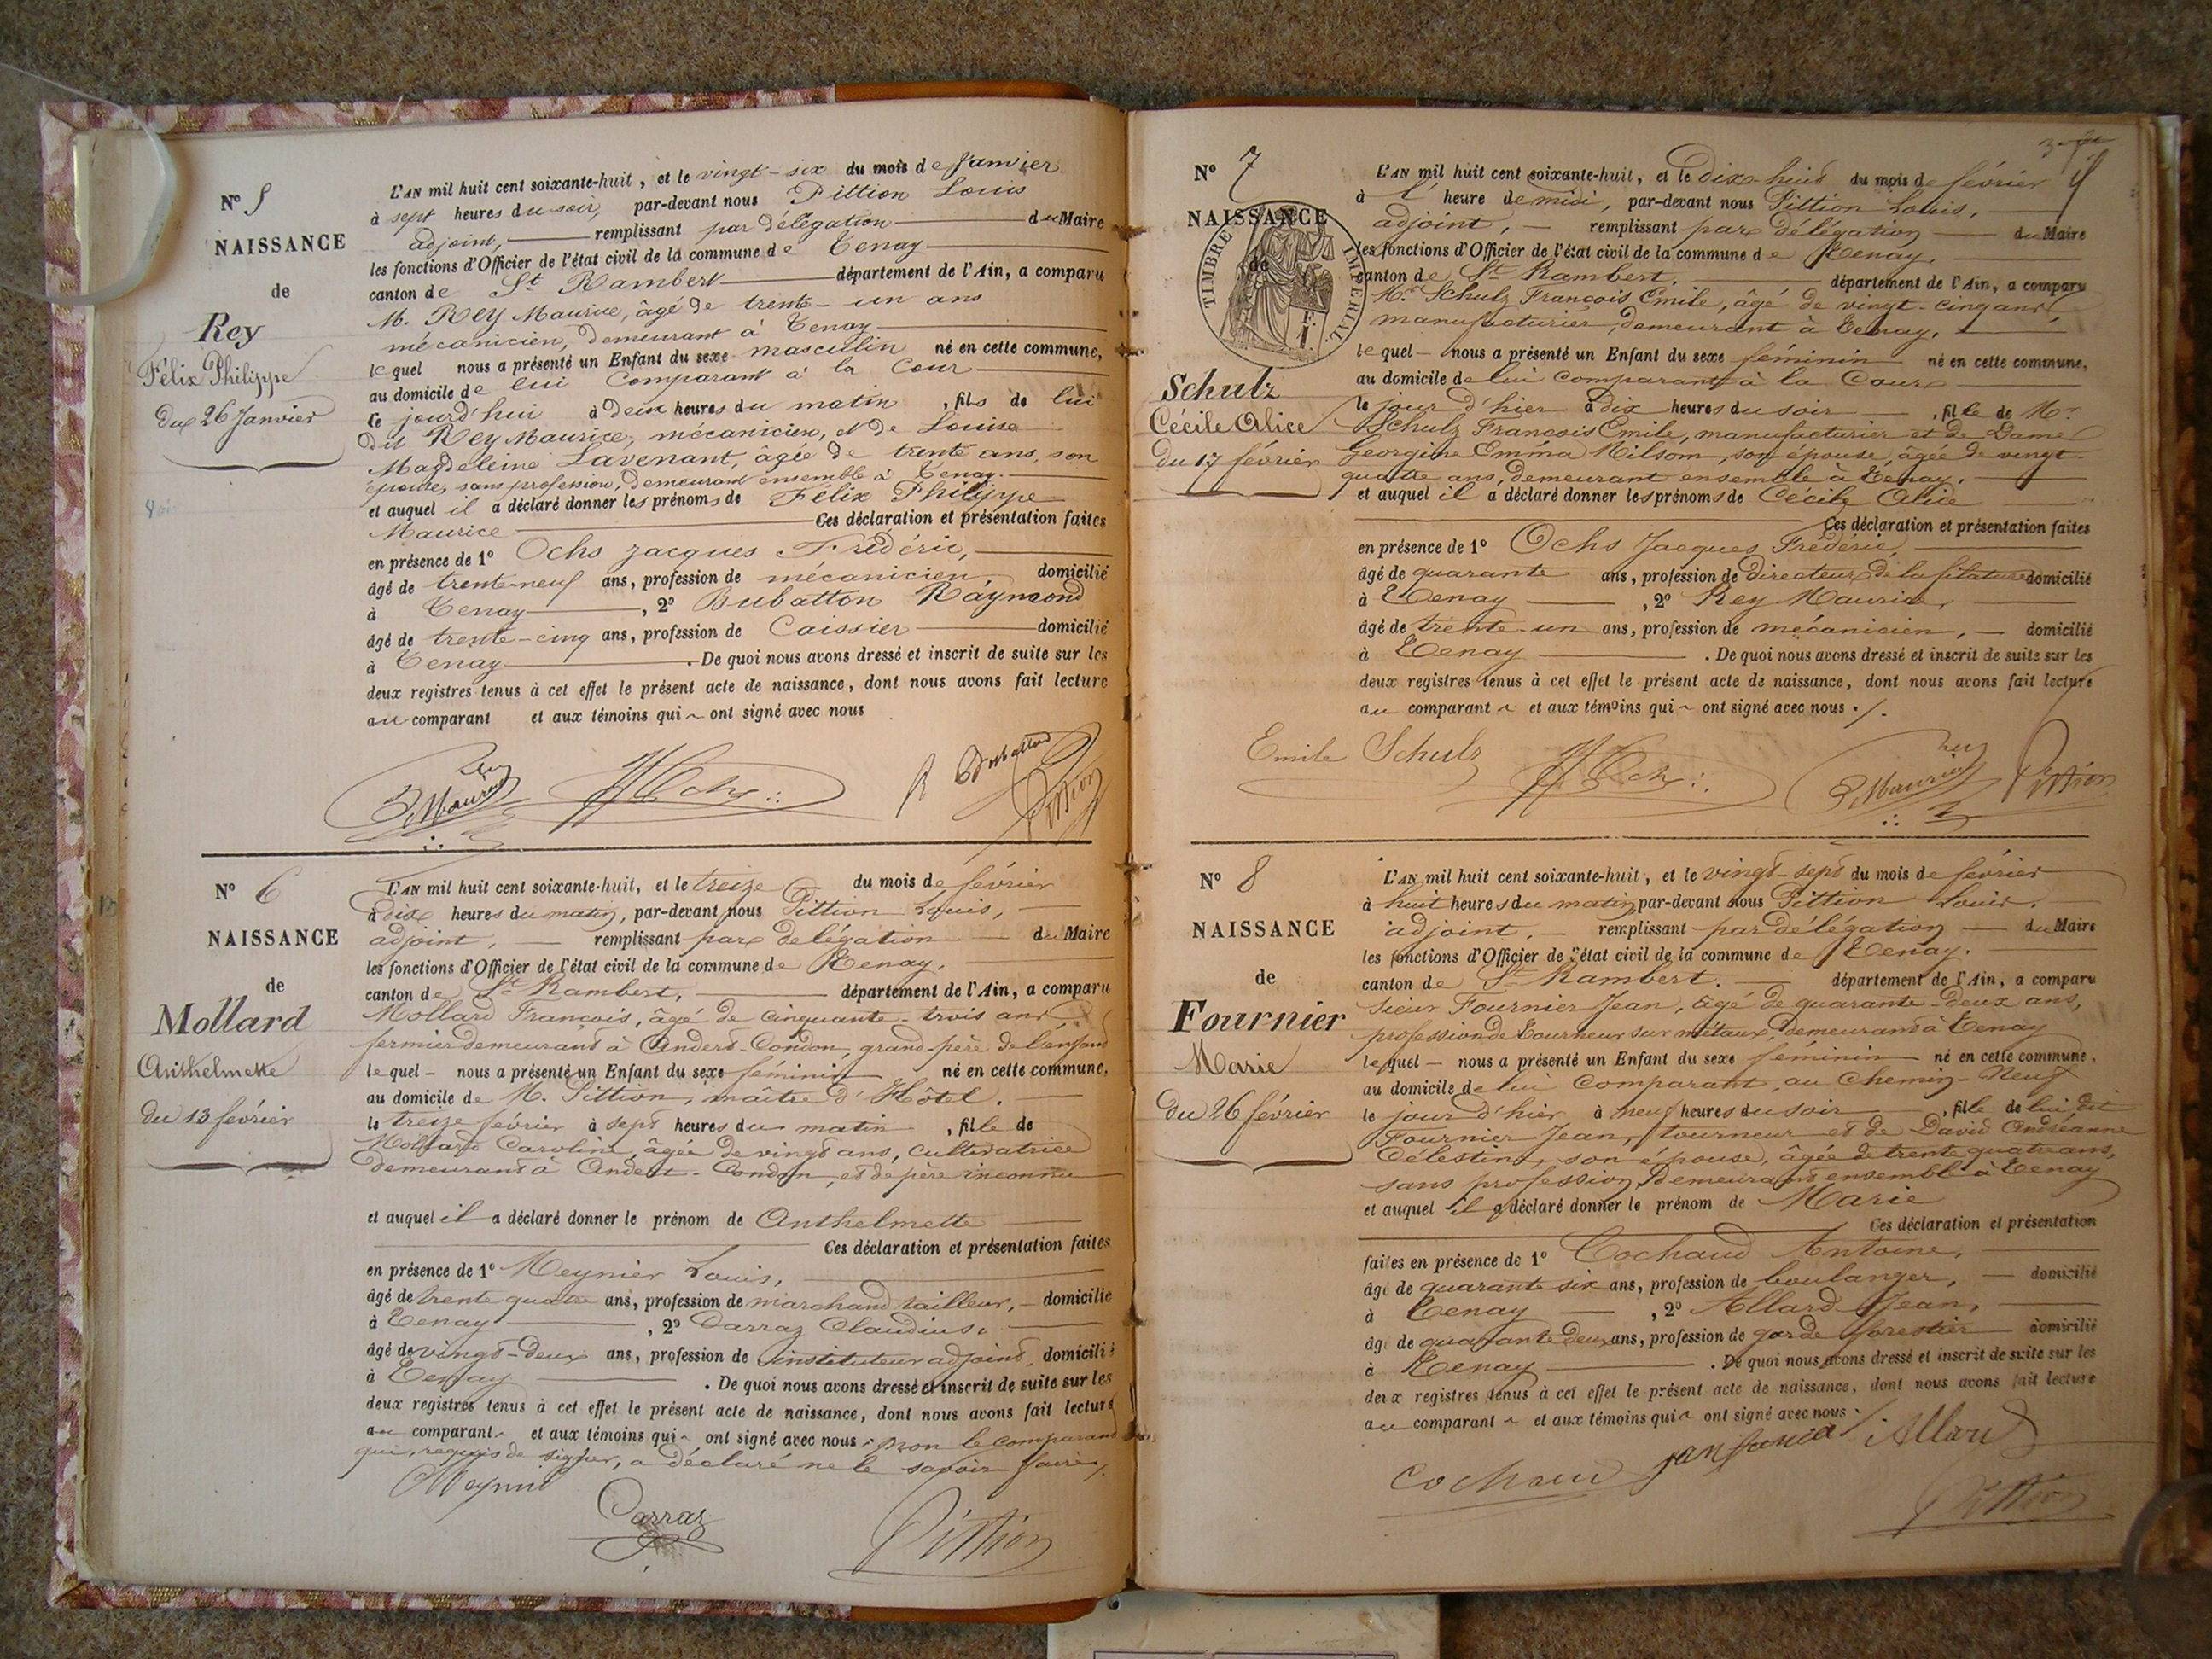 N° 5
NAISSANCE
de
Rey
Félix Philippe
du 26 Janvier
L'AN mil huit cent soixante-huit, et le vingt-six du mois de Janvier
à sept heures du soir, par-devant nous Pittion Louis
adjoint, remplissant par délégation du Maire
les fonctions d'Officier de l'état civil de la commune de Tenay
canton de St Rambert département de l'Ain, a comparu
M. Rey Maurice, âgé de trente-un ans
mécanicien, demeurant à Tenay
lequel nous a présenté un Enfant du sexe masculin né en cette commune,
au domicile de lui comparant à la Cour
le jourd'hui à deux heures du matin, fils de lui
dit Rey Maurice, mécanicien, et de Louise
Magdeleine Lavenant, âgée de trente ans, son
épouse, sans profession, demeurant ensemble à Tenay.
et auquel il a déclaré donner les prénoms de Félix Philippe
Maurice Ces déclaration et présentation faites
en présence de 1° Ochs Jacques Frédéric,
âgé de trente-neuf ans, profession de mécanicien, domicilié
à Tenay, 2° Dubatton Raymond
âgé de trente-cinq ans, profession de Caissier domicilié
à Tenay. De quoi nous avons dressé et inscrit de suite sur les
deux registres tenus à cet effet le présent acte de naissance, dont nous avons fait lecture
au comparant et aux témoins qui ont signé avec nous
Rey Maurice Ochs R Dubatton Pittion
N° 6
NAISSANCE
de
Mollard
Anthelmette
du 13 février
L'AN mil huit cent soixante-huit, et le treize du mois de février
à dix heures du matin, par-devant nous Pittion Louis,
adjoint, remplissant par délégation du Maire
les fonctions d'Officier de l'état civil de la commune de Tenay,
canton de St Rambert, département de l'Ain, a comparu
Mollard François, âgé de cinquante-trois ans
fermier demeurant à Andert-Condon, grand-père de l'enfant
lequel nous a présenté un Enfant du sexe féminin né en cette commune,
au domicile de M. Pittion, maître d'Hôtel.
le treize février à sept heures du matin, fille de
Mollard Caroline, âgée de vingt ans, cultivatrice
demeurant à Andert-Condon, et de père inconnu
et auquel il a déclaré donner le prénom de Anthelmette
Ces déclaration et présentation faites
en présence de 1° Meynier Louis,
âgé de trente quatre ans, profession de marchand tailleur, domicilié
à Tenay, 2° Carraz Claudius,
âgé de vingt-deux ans, profession de instituteur adjoint, domicilié
à Tenay. De quoi nous avons dressé et inscrit de suite sur les
deux registres tenus à cet effet le présent acte de naissance, dont nous avons fait lecture
au comparant et aux témoins qui ont signé avec nous, non le comparant
qui, requis de signer, a déclaré ne le savoir faire.
Meynier
Carraz Pittion
N° 7
NAISSANCE
de
TIMBRE IMPÉRIAL
Schulz
Cécile Alice
du 17 février
L'AN mil huit cent soixante-huit, et le dix-huit du mois de février
à l' heure de midi, par-devant nous Pittion Louis,
adjoint, remplissant par délégation du Maire
les fonctions d'Officier de l'état civil de la commune de Tenay,
canton de St Rambert. département de l'Ain, a comparu
Mr. Schulz François Emile, âgé de vingt-cinq ans,
manufacturier, demeurant à Tenay,
lequel nous a présenté un Enfant du sexe féminin né en cette commune,
au domicile de lui comparant à la Cour
le jour d'hier à dix heures du soir, fille de Mr.
Schulz François Emile, manufacturier et de Dame
Georgine Emma Milsom, son épouse, âgée de vingt-
quatre ans, demeurant ensemble à Tenay.
et auquel il a déclaré donner les prénoms de Cécile Alice
Ces déclaration et présentation faites
en présence de 1° Ochs Jacques Frédéric,
âgé de quarante ans, profession de Directeur de la filature domicilié
à Tenay, 2° Rey Maurice,
âgé de trente-un ans, profession de mécanicien, domicilié
à Tenay. De quoi nous avons dressé et inscrit de suite sur les
deux registres tenus à cet effet le présent acte de naissance, dont nous avons fait lecture
au comparant et aux témoins qui ont signé avec nous ./.
Emile Schulz Ochs Rey Maurice Pittion
N° 8
NAISSANCE
de
Fournier
Marie
du 26 février
L'AN mil huit cent soixante-huit, et le vingt-sept du mois de février
à huit heures du matin, par-devant nous Pittion Louis,
adjoint, remplissant par délégation du Maire
les fonctions d'Officier de l'état civil de la commune de Tenay.
canton de St Rambert. département de l'Ain, a comparu
Sieur Fournier Jean, âgé de quarante-deux ans,
profession de tourneur sur métaux, demeurant à Tenay
lequel nous a présenté un Enfant du sexe féminin né en cette commune,
au domicile de lui comparant, au Chemin-Neuf
le jour d'hier à neuf heures du soir, fille de lui dit
Fournier Jean, tourneur et de David Andréanne
Célestine, son épouse, âgée de trente quatre ans,
sans profession, demeurant ensemble à Tenay
et auquel il a déclaré donner le prénom de Marie
Ces déclaration et présentation
faites en présence de 1° Cochaud Antoine,
âgé de quarante six ans, profession de boulanger, domicilié
à Tenay, 2° Allard Jean,
âgé de quarante deux ans, profession de garde forestier domicilié
à Tenay. De quoi nous avons dressé et inscrit de suite sur les
deux registres tenus à cet effet le présent acte de naissance, dont nous avons fait lecture
au comparant et aux témoins qui ont signé avec nous.
Cochaud Allard
Pittion